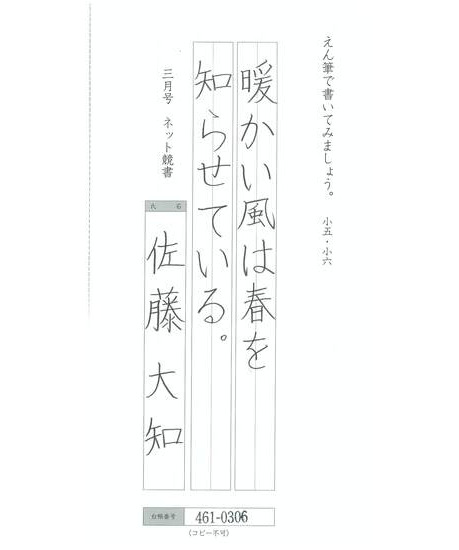 えん筆で書いてみましょう。 小五・小六
暖かい風は春を
知らせている。
三月号 ネット競書
氏名
佐藤大知
台帳番号 461-0306
(コピー不可)